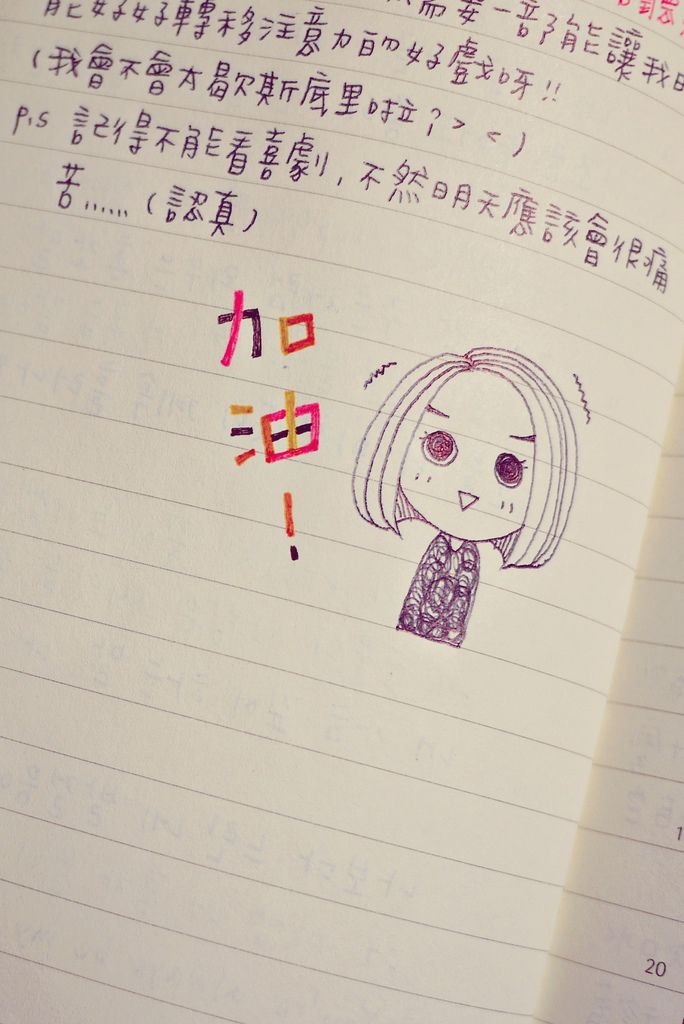 需要一部能讓我
能好好轉移注意力的好戲呀!!
(我會不會太歇斯底里啦?> <)
p.s 記得不能看喜劇,不然明天應該會很痛
苦......(認真)
加
油
!
20